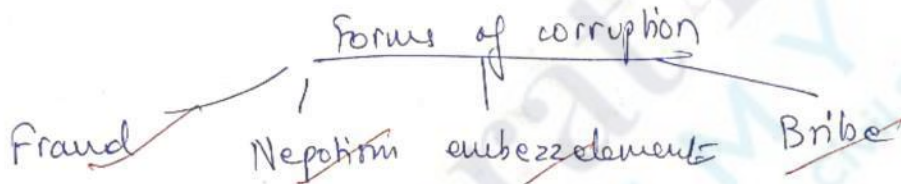 Forms of corruption
Fraud Nepotism embezzelement Bribe